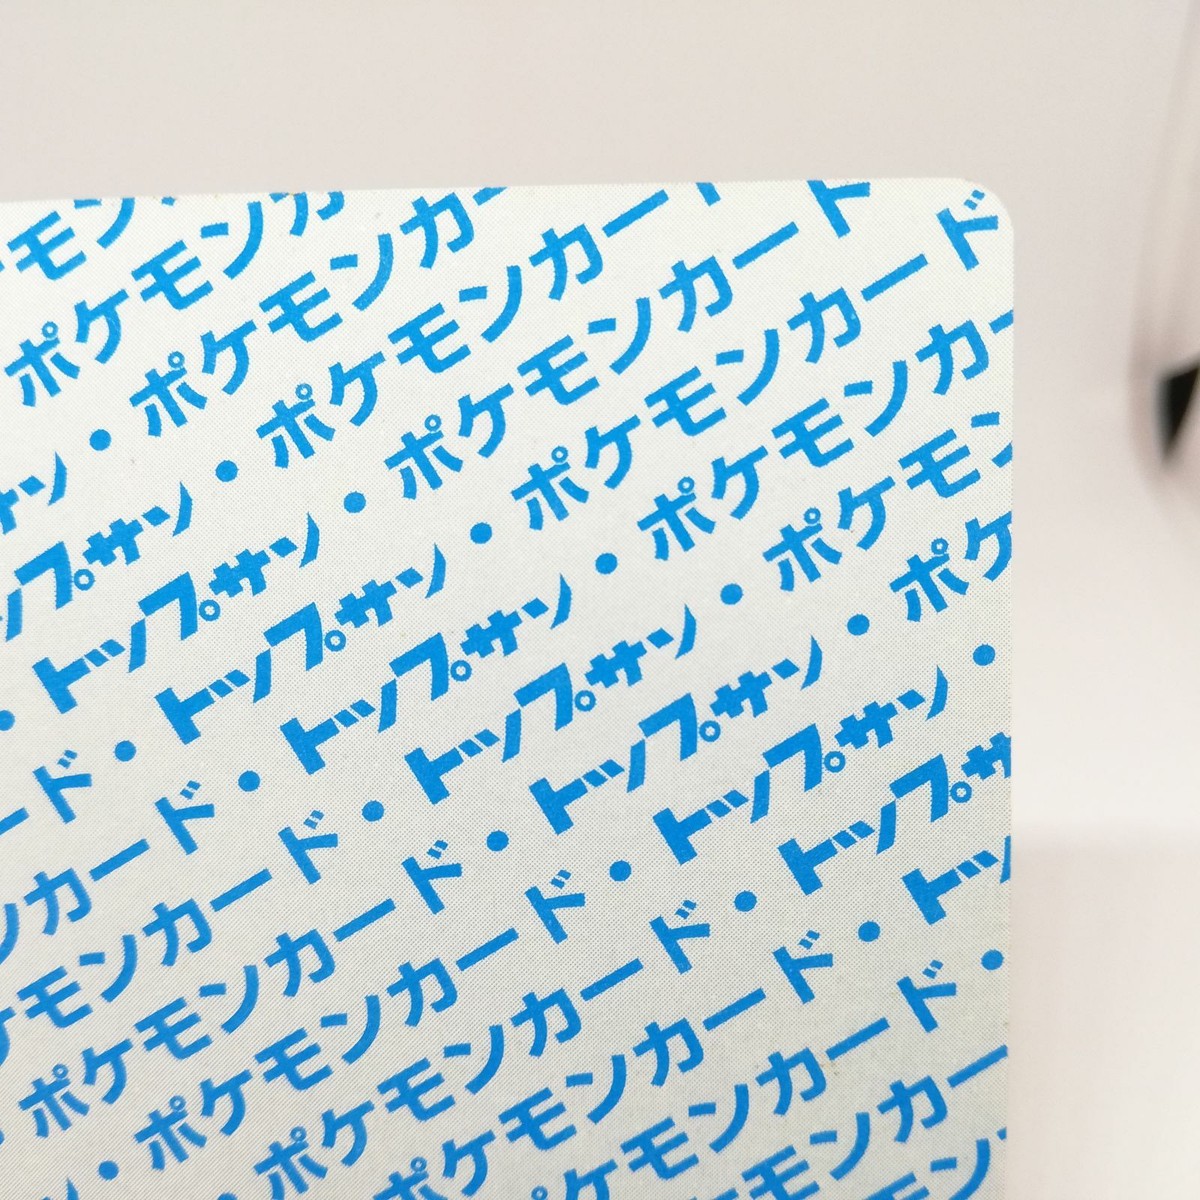 モン
ポケモンカ
サン・ポケモンカー
ップサン・ポケモンカード
・トップサン・ポケモンカード
ード・トップサン・ポケモンカード
ンカード・トップサン・ポケモンカー
ケモンカード・トップサン・ポケモン
ポケモンカード・トップサン・ポケ
ン・ポケモンカード・トップサン・
ポケモンカード・トップサ
ポケモンカード・トッ
ケモンカード・
モンカー
モン